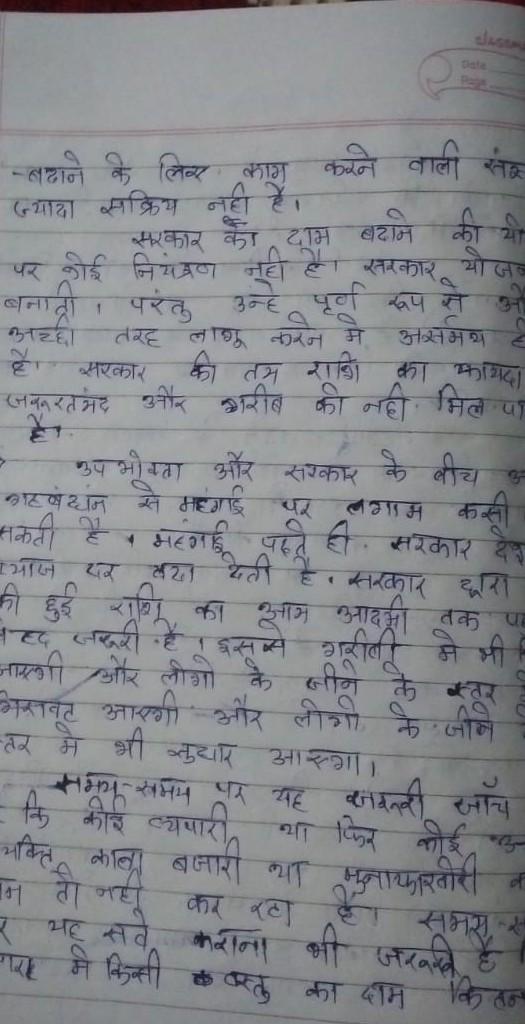 Date
Page
-बढाने के लिए काम करने वाली
ज्यादा सक्रिय नही है।
सरकार का दाम बढाने की
पर कोई नियंत्रण नही है। सरकार
बनाती, परंतु उन्हे पूर्ण रूप से
अच्छी तरह लागू करने मे असमर्थ
है। सरकार की तय राशि का फायदा
जरूरतमंद और गरीब को नही मिल
है।
उपभोक्ता और सरकार के बीच
गठबंधन से महंगाई पर लगाम कसी
सकती है। महंगाई बढ़ते ही सरकार
ब्याज दर बढा देती है। सरकार द्वारा
की हुई राशि का आम आदमी तक
बेहद जरूरी है। इससे गरीबी मे भी
जाएगी और लोगो के जीने के स्तर
गिरावट आएगी और लोगो के जीने
स्तर मे भी सुधार आएगा।
समय-समय पर यह जरूरी जाँच
कि कोई व्यपारी या फिर कोई
व्यक्ति काला बजारी या मुनाफाखोरी
तो नही कर रहा है। समय
यह सर्वे कराना भी जरूरी है
मे किसी वस्तु का दाम